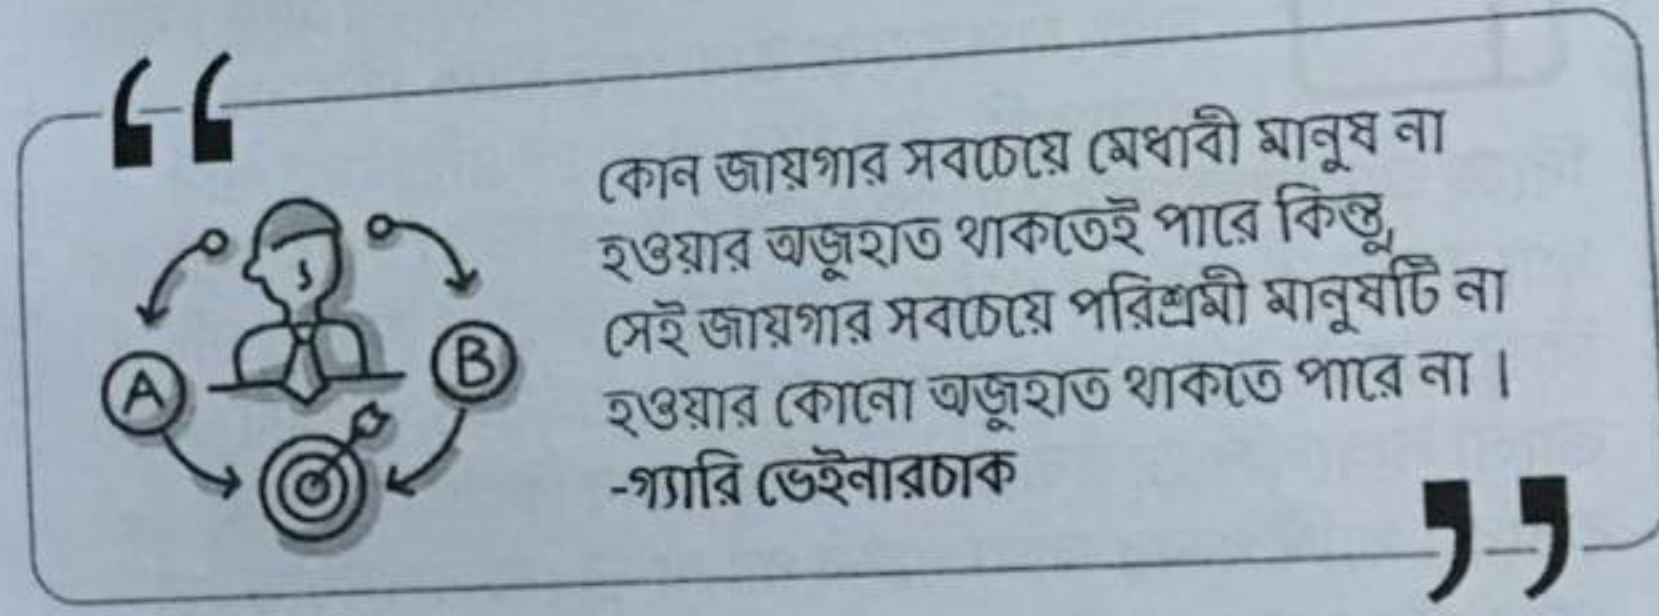 A
B
কোন জায়গার সবচেয়ে মেধাবী মানুষ না
হওয়ার অজুহাত থাকতেই পারে কিন্তু,
সেই জায়গার সবচেয়ে পরিশ্রমী মানুষটি না
হওয়ার কোনো অজুহাত থাকতে পারে না ।
-গ্যারি ভেইনারচাক